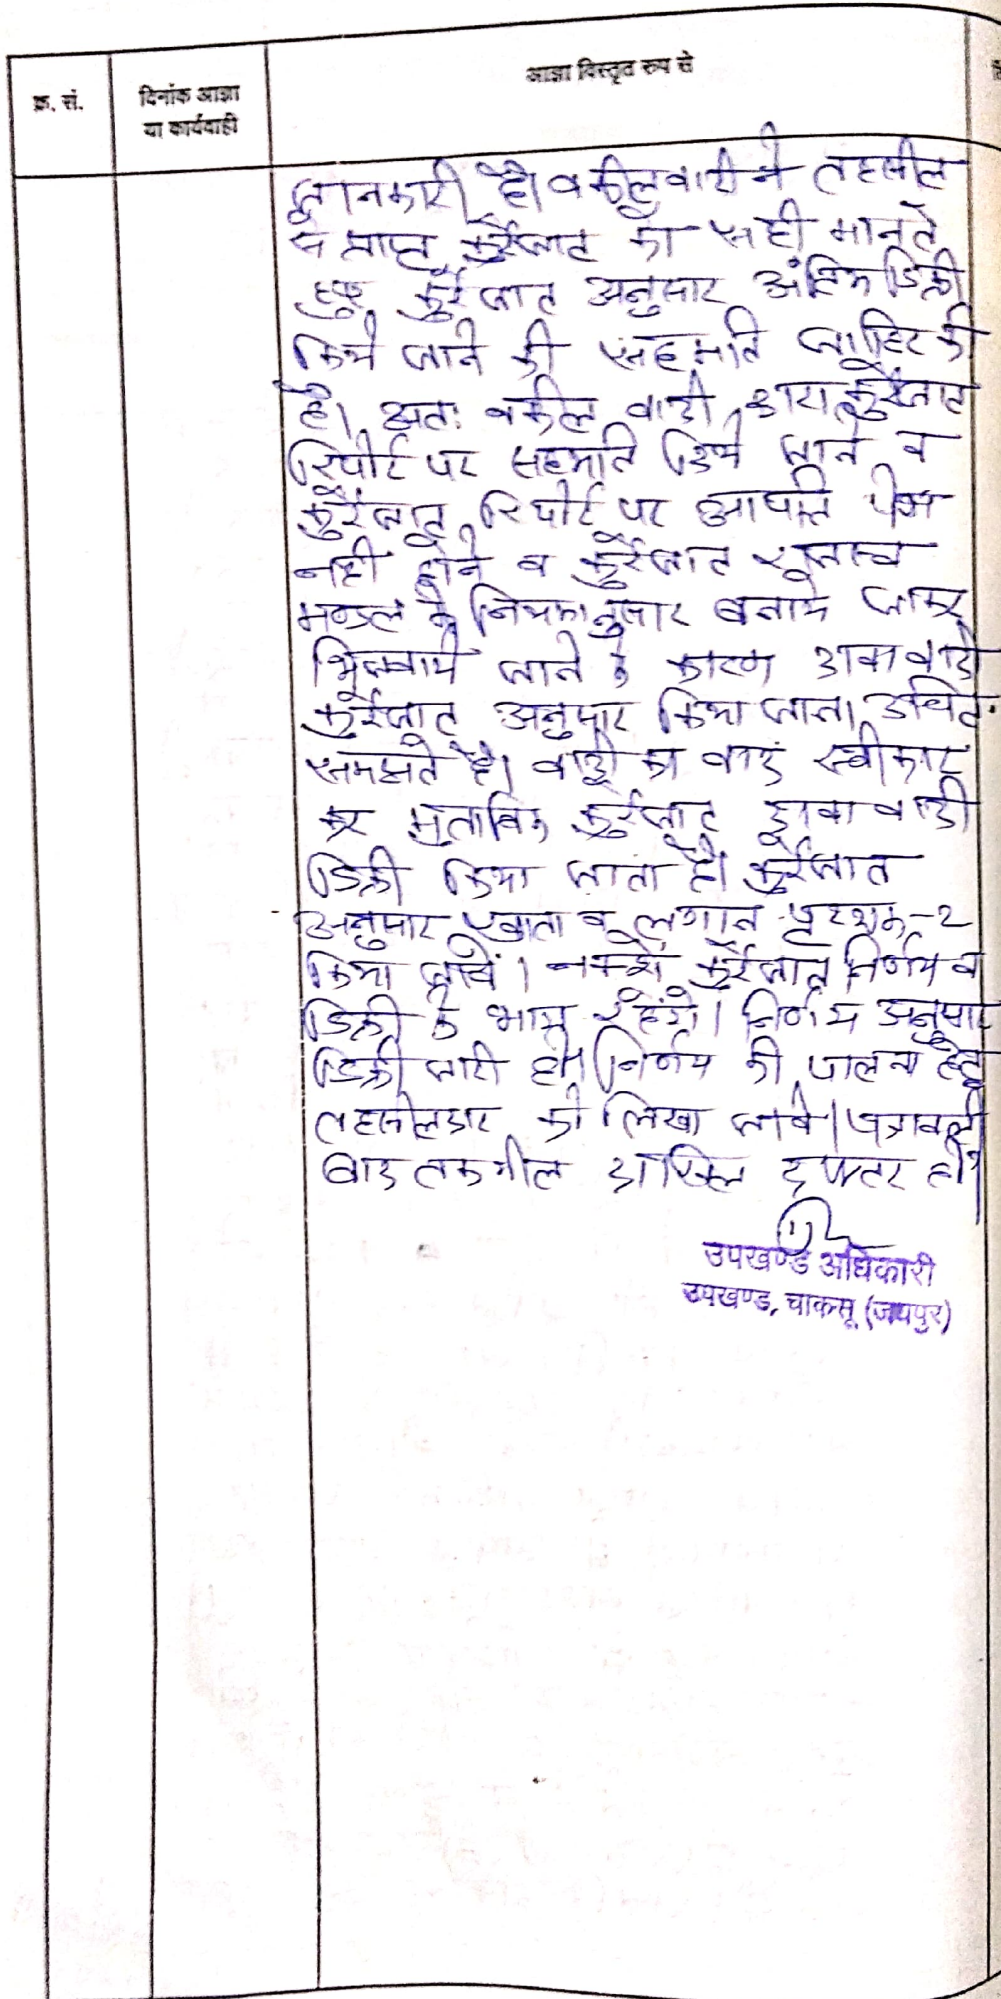 क्र. सं.
दिनांक आज्ञा
या कार्यवाही
आज्ञा विस्तृत रुप से
जानकारी है। वकील वादी ने तहसील
से प्राप्त कुर्रेजात को सही मानते
हुए कुर्रेजात अनुसार अंतिम डिक्री
किये जाने की सहमति जाहिर की
है। अतः वकील वादी द्वारा कुर्रेजात
रिपोर्ट पर सहमति दिये जाने व
कुर्रेजात रिपोर्ट पर आपत्ति पेश
नही होने व कुर्रेजात राजस्व
मण्डल के नियमानुसार बनाये जाकर
भिजवाये जाने के कारण दावा वादी
कुर्रेजात अनुसार किया जाना उचित
समझते है। वादी का वाद स्वीकार
कर मुताबिक कुर्रेजात दावा वादी
डिक्री किया जाता है। कुर्रेजात
अनुसार खाता व लगान पृथक-२
किया जावें। नक्शे कुर्रेजात निर्णय व
डिक्री के भाग रहेंगे। निर्णय अनुसार
डिक्री जारी हो। निर्णय की पालना हेतु
तहसीलदार को लिखा जावे। पत्रावली
बाद तकमील दाखिल दफ्तर हो।
उपखण्ड अधिकारी
उपखण्ड, चाकसू (जयपुर)